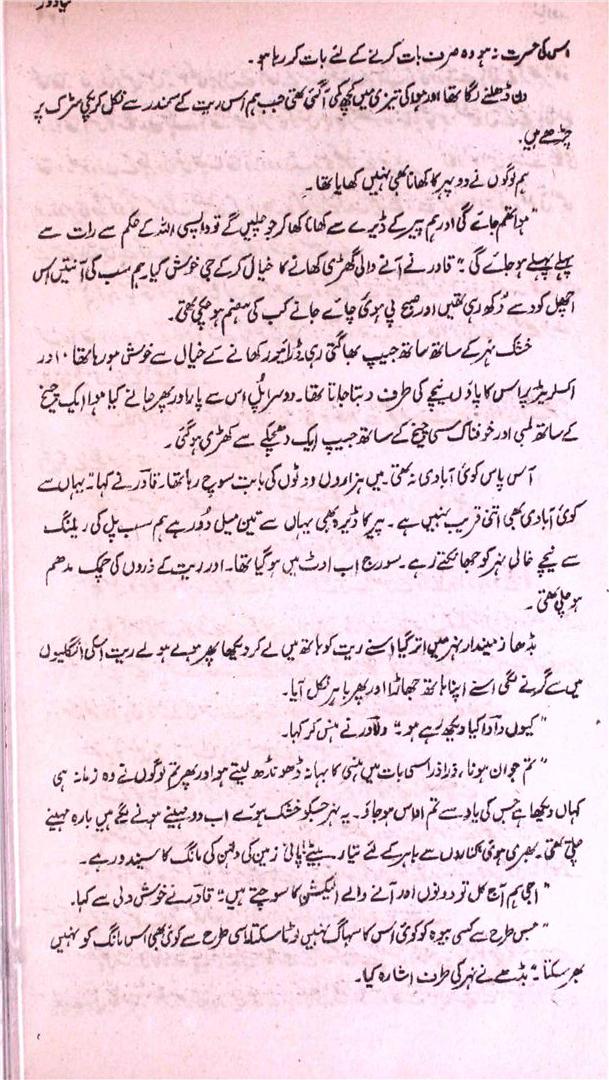 اس کی حسرت نہ ہو وہ صرف بات کرنے کے لئے بات کر رہا ہو۔
دن ڈھلنے لگا تھا اور ہوا کی تیزی میں کچھ کمی آگئی تھی جب ہم اس ریت کے سمندر سے نکل کر پکی سڑک پر
چڑھے ہیں۔
ہم لوگوں نے دوپہر کا کھانا بھی نہیں کھایا تھا۔
"ہوا تھم جائے گی اور ہم پیر کے ڈیرے سے کھانا کھا کر جو چلیں گے تو واپسی اللہ کے حکم سے رات سے
پہلے پہلے ہو جائے گی" قادر نے آنے والی گھڑی کھانے کا خیال کر کے جی خوش کیا۔ ہم سب کی آنتیں اس
اچھل کود سے دُکھ رہی تھیں اور صبح پی ہوئی چائے جانے کب کی ہضم ہو چکی تھی۔
خشک نہر کے ساتھ ساتھ جیپ بھاگتی رہی۔ ڈرائیور کھانے کے خیال سے خوش ہو رہا تھا، اور
اکسلریٹر پر اس کا پاؤں نیچے کی طرف دبتا جاتا تھا۔ دوسرا پُل اس سے پار اور پھر جانے کیا ہوا ایک چیخ
کے ساتھ لمبی اور خوفناک سی چیخ کے ساتھ جیپ ایک دھچکے سے کھڑی ہو گئی۔
آس پاس کوئی آبادی نہ تھی۔ میں ہزاروں ووٹوں کی بابت سوچ رہا تھا۔ قادر نے کہا۔ "یہاں سے
کوئی آبادی بھی اتنی قریب نہیں ہے۔ پیر کا ڈیرہ بھی یہاں سے تین میل دُور ہے ہم سب پل کی ریلنگ
سے نیچے خالی نہر کو جھانکتے رہے۔ سورج اب اوٹ میں ہو گیا تھا۔ اور ریت کے ذروں کی چمک مدھم
ہو چلی تھی۔
بڈھا زمیندار نہر میں اتر گیا اسنے ریت کو ہاتھ میں لے کر دیکھا پھر ہولے ہولے ریت اسکی انگلیوں
میں سے گرنے لگی اسنے اپنا ہاتھ جھاڑا اور پھر باہر نکل آیا۔
"کیوں دادا کیا دیکھ رہے ہو" قادر نے ہنس کر کہا۔
"تم جوان ہونا، ذرا ذرا سی بات میں ہنسی کا بہانہ ڈھونڈھ لیتے ہو اور پھر تم لوگوں نے وہ زمانہ ہی
کہاں دیکھا ہے جس کی یاد سے تم اداس ہو جاؤ۔ یہ نہر جسکو خشک ہوئے اب دو مہینے ہونے لگے ہیں بارہ مہینے
چلتی تھی۔ بھری ہوئی کناروں سے باہر کے لئے تیار بیٹے! پانی زمین کی دلہن کی مانگ کا سیندور ہے۔
"اجی ہم آج کل تو ووٹوں اور آنے والے الیکشن کا سوچتے ہیں" قادر نے خوش دلی سے کہا۔
"جس طرح سے کسی بیوہ کو کوئی اس کا سہاگ نہیں لوٹا سکتا اسی طرح سے کوئی بھی اس مانگ کو نہیں
بھر سکتا" بڈھے نے نہر کی طرف اشارہ کیا۔